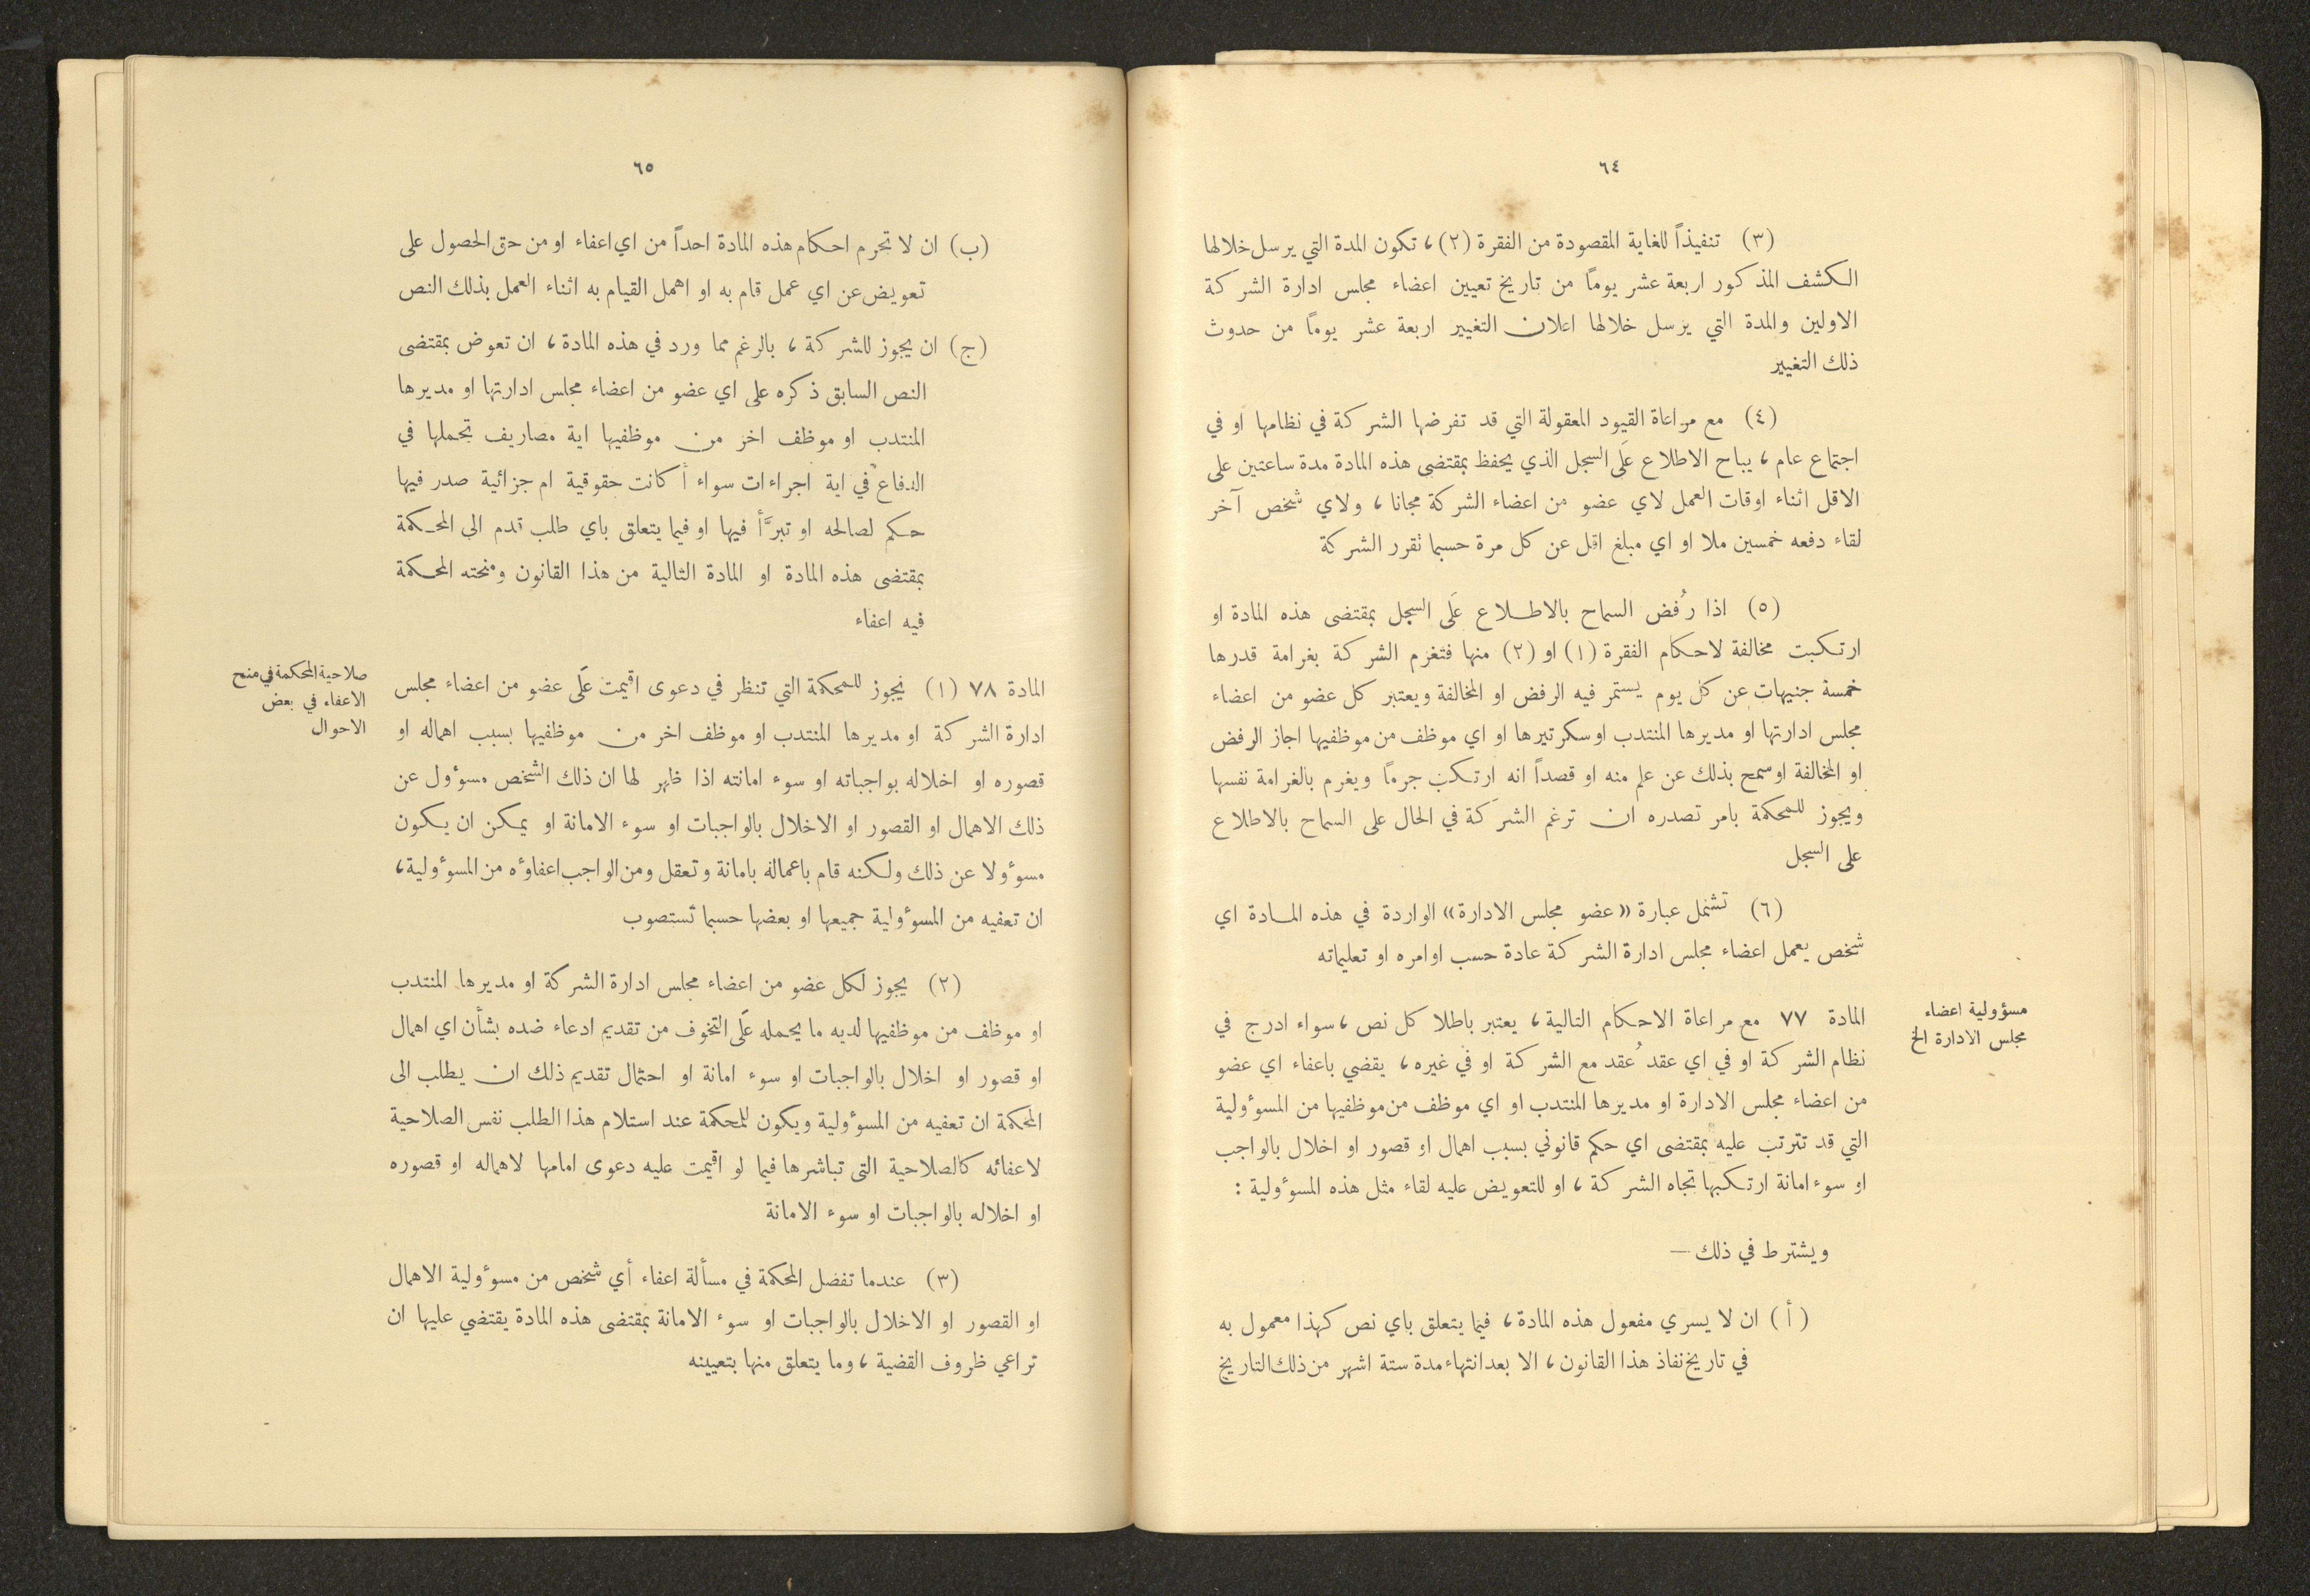 ٦٤
(٣) تنفيذاً للغاية المقصودة من الفقرة (٢)، تكون المدة التي يرسل خلالها
الكشف المذكور اربعة عشر يومًا من تاريخ تعيين اعضاء مجلس ادارة الشركة
الاولين والمدة التي يرسل خلالها اعلان التغيير اربعة عشر يومًا من حدوث
ذلك التغيير
(٤) مع مراعاة القيود المعقولة التي قد تفرضها الشركة في نظامها او في
اجتماع عام، يباح الاطلاع عَلَى السجل الذي يحفظ بمقتضى هذه المادة مدة ساعتين على
الاقل اثناء اوقات العمل لاي عضو من اعضاء الشركة مجانا، ولاي شخص آخر
لقاء دفعه خمسين ملا او اي مبلغ اقل عن كل مرة حسبما تقرر الشركة
(٥) اذا رُفض السماح بالاطلاع عَلَى السجل بمقتضى هذه المادة او
ارتكبت مخالفة لاحكام الفقرة (١) او (٢) منها فتغرم الشركة بغرامة قدرها
خمسة جنيهات عن كل يوم يستمر فيه الرفض او المخالفة ويعتبر كل عضو من اعضاء
مجلس ادارتها او مديرها المنتدب او سكرتيرها او اي موظف من موظفيها اجاز الرفض
او المخالفة او سمح بذلك عن علم منه او قصداً انه ارتكب جرمًا ويغرم بالغرامة نفسها
ويجوز للمحكمة بامر تصدره ان ترغم الشركة في الحال على السماح بالاطلاع
على السجل
(٦) تشمل عبارة «عضو مجلس الادارة» الواردة في هذه المادة اي
شخص يعمل اعضاء مجلس ادارة الشركة عادة حسب اوامره او تعليماته
مسؤولية اعضاء
مجلس الادارة الخ
المادة ٧٧ مع مراعاة الاحكام التالية، يعتبر باطلا كل نص، سواء ادرج في
نظام الشركة او في اي عقد عُقد مع الشركة او في غيره، يقضي باعفاء اي عضو
من اعضاء مجلس الادارة او مديرها المنتدب او اي موظف من موظفيها من المسؤولية
التي قد تترتب عليه بمقتضى اي حكم قانوني بسبب اهمال او قصور او اخلال بالواجب
او سوء امانة ارتكبها تجاه الشركة، او للتعويض عليه لقاء مثل هذه المسؤولية :
ويشترط في ذلك —
(أ) ان لا يسري مفعول هذه المادة، فيما يتعلق باي نص كهذا معمول به
في تاريخ نفاذ هذا القانون، الا بعد انتهاء مدة ستة اشهر من ذلك التاريخ
٦٥
(ب) ان لا تحرم احكام هذه المادة احداً من اي اعفاء او من حق الحصول على
تعويض عن اي عمل قام به او اهمل القيام به اثناء العمل بذلك النص
(ج) ان يجوز للشركة، بالرغم مما ورد في هذه المادة، ان تعوض بمقتضى
النص السابق ذكره على اي عضو من اعضاء مجلس ادارتها او مديرها
المنتدب او موظف اخر من موظفيها اية مصاريف تحملها في
الدفاع في اية اجراءات سواء أكانت حقوقية ام جزائية صدر فيها
حكم لصالحه او تبرَّأ فيها او فيما يتعلق باي طلب قدم الى المحكمة
بمقتضى هذه المادة او المادة التالية من هذا القانون ومنحته المحكمة
فيه اعفاء
صلاحية المحكمة في منح
الاعفاء في بعض
الاحوال
المادة ٧٨ (١) يجوز للمحكمة التي تنظر في دعوى اقيمت عَلَى عضو من اعضاء مجلس
ادارة الشركة او مديرها المنتدب او موظف اخر من موظفيها بسبب اهماله او
قصوره او اخلاله بواجباته او سوء امانته اذا ظهر لها ان ذلك الشخص مسؤول عن
ذلك الاهمال او القصور او الاخلال بالواجبات او سوء الامانة او يمكن ان يكون
مسؤولا عن ذلك ولكنه قام باعماله بامانة وتعقل ومن الواجب اعفاؤه من المسؤولية،
ان تعفيه من المسؤولية جميعها او بعضها حسبما تستصوب
(٢) يجوز لكل عضو من اعضاء مجلس ادارة الشركة او مديرها المنتدب
او موظف من موظفيها لديه ما يحمله عَلَى التخوف من تقديم ادعاء ضده بشأن اي اهمال
او قصور او اخلال بالواجبات او سوء امانة او احتمال تقديم ذلك ان يطلب الى
المحكمة ان تعفيه من المسؤولية ويكون للمحكمة عند استلام هذا الطلب نفس الصلاحية
لاعفائه كالصلاحية التى تباشرها فيما لو اقيمت عليه دعوى امامها لاهماله او قصوره
او اخلاله بالواجبات او سوء الامانة
(٣) عندما تفصل المحكمة في مسألة اعفاء أي شخص من مسؤولية الاهمال
او القصور او الاخلال بالواجبات او سوء الامانة بمقتضى هذه المادة يقتضي عليها ان
تراعي ظروف القضية، وما يتعلق منها بتعيينه